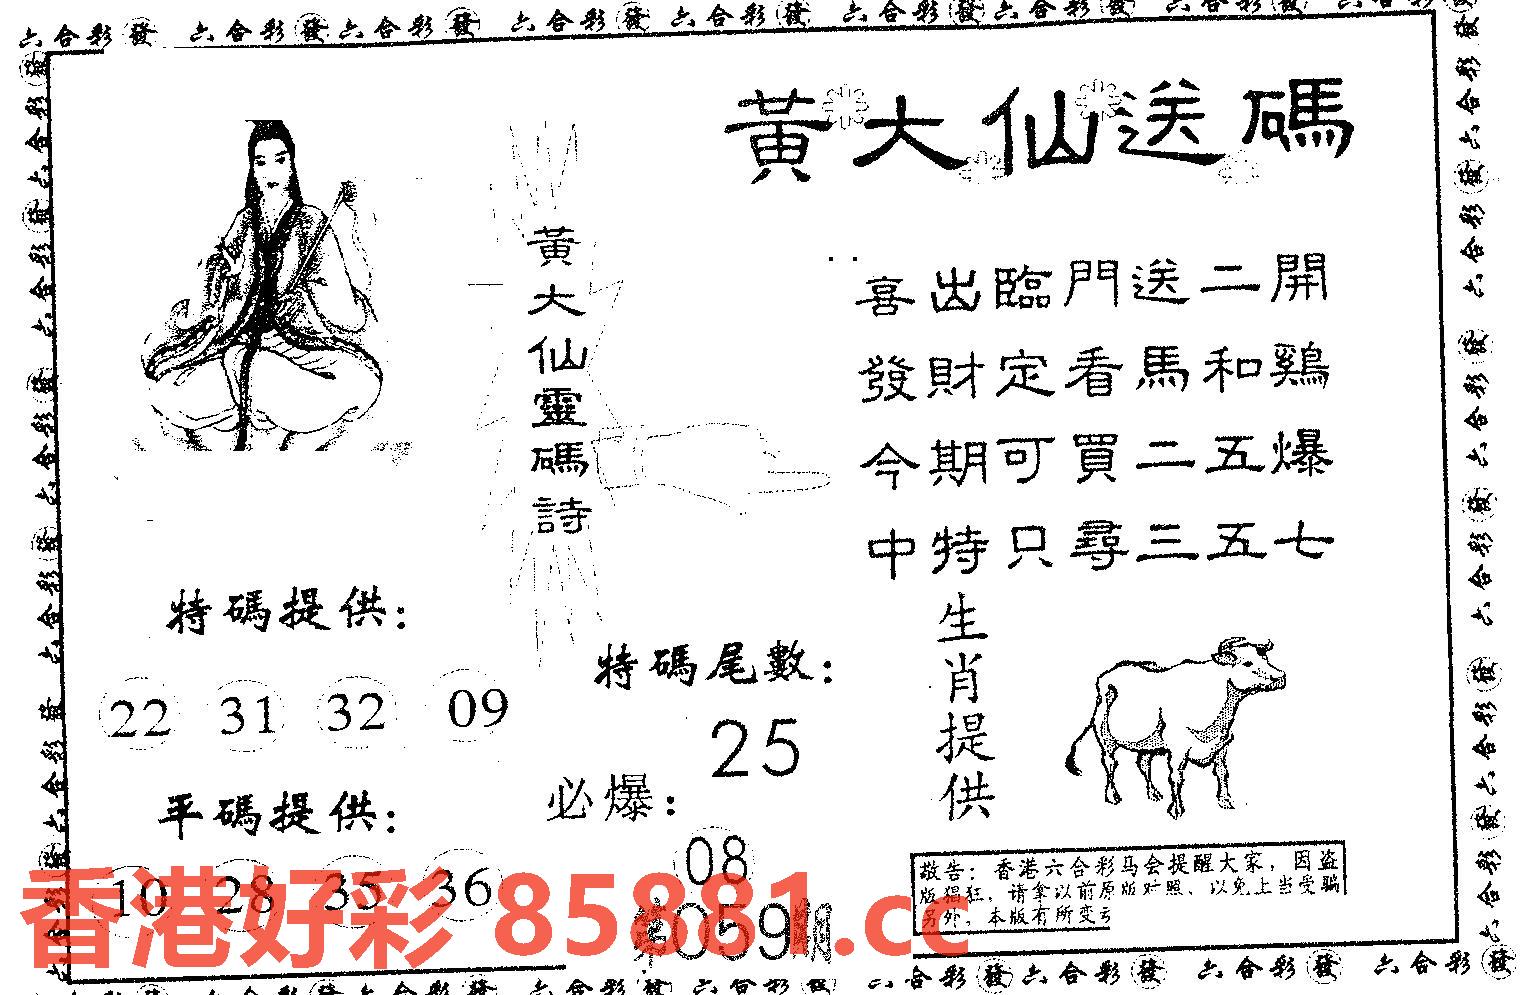 六合彩發 六合彩發六合彩發 六合彩發 六合彩發 六合彩發六合彩發 六合彩發 六合彩發
黃大仙送碼
黃大仙靈碼詩
喜出臨門送二開
發財定看馬和鷄
今期可買二五爆
中特只尋三五七
特碼提供：
22 31 32 09
平碼提供：
10 28 35 36
特碼尾數：
25
必爆：
08
第059期
生肖提供
敬告：香港六合彩马会提醒大家，因盗
版猖狂，请拿以前原版对照，以免上当受骗
另外，本版有所变亏
香港好彩 85881.cc
六合彩發六合彩發 六合彩發 六合彩發